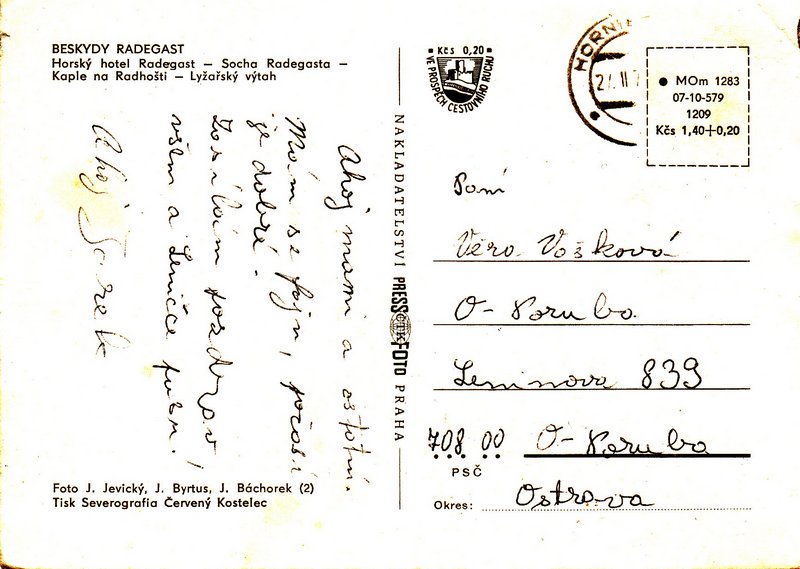 BESKYDY RADEGAST
Horský hotel Radegast – Socha Radegasta –
Kaple na Radhošti – Lyžařský výtah
Ahoj mami a ostatní.
Mám se fajn, počasí
je dobré.
Zasílám pozdrav
všem a Leničce pusu.
Ahoj Jarek
Foto J. Jevický, J. Byrtus, J. Báchorek (2)
Tisk Severografia Červený Kostelec
NAKLADATELSTVÍ PRESSFOTO PRAHA
ČTK
Kčs 0,20
VE PROSPĚCH CESTOVNÍHO RUCHU
HORNÍ
MOm 1283
07-10-579
1209
Kčs 1,40+0,20
Paní
Věra Vošková
O-Poruba
Leninova 839
708 00 O-Poruba
PSČ
Okres: Ostrava